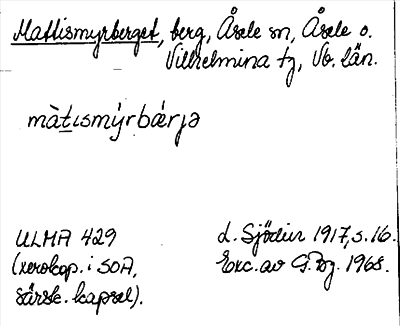 Mattismyrberget, berg, Åsele sn, Åsele o.
Vilhelmina tg, Vb. län.
màt̲ısmýrbǽrɟə
ULMA 429
(xerokop. i SOA,
särsk. kapsel).
L. Sjödin 1917, s. 16.
Exc. av G. Bg. 1968.